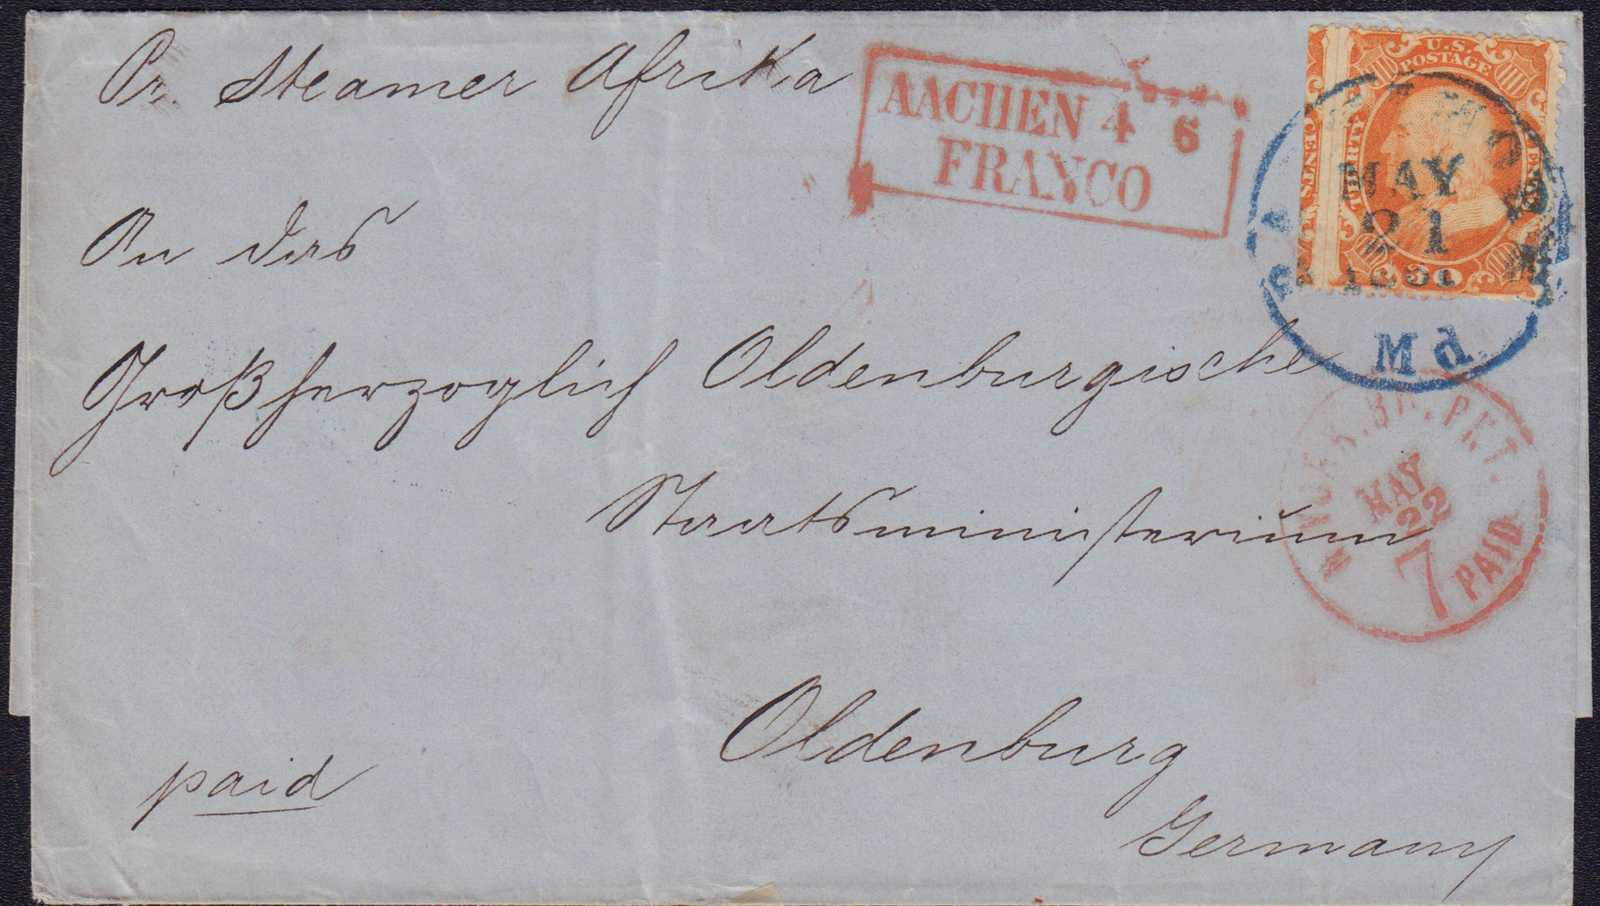 Pr. Steamer Afrika
AACHEN 4 6
FRANCO
U.S.
POSTAGE
THIRTY
CENTS
30
MAY
21
1861
Md.
An das
Großherzoglich Oldenburgische
Staatsministerium
N. YORK. BR. PKT.
MAY
22
7
PAID
Oldenburg
Germany
paid